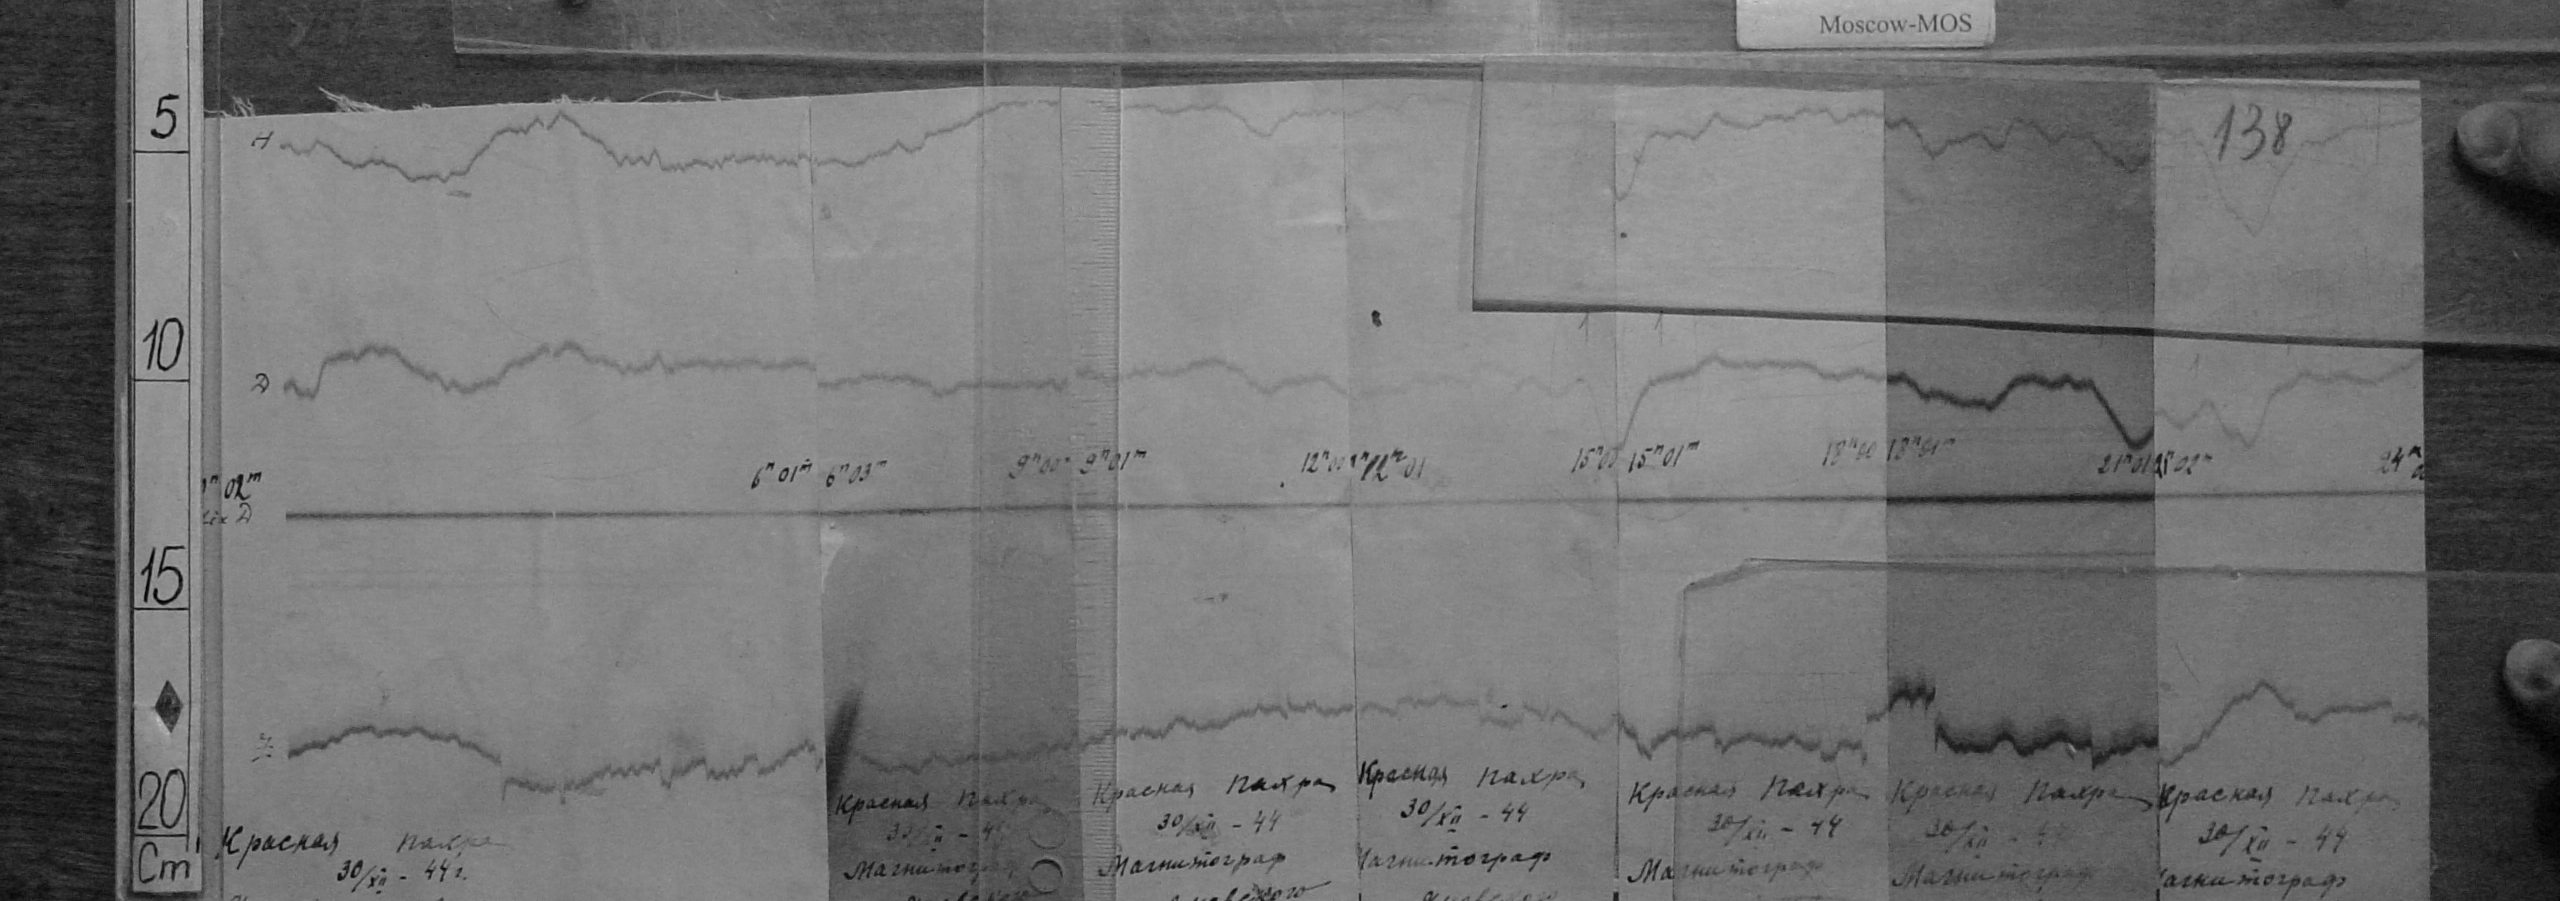 Moscow-MOS
138
5
10
15
20
Cm
H
D
Z
02ᵐ
6ʰ01ᵐ
6ʰ03ᵐ
9ʰ00ᵐ
9ʰ01ᵐ
12ʰ00ᵐ
12ʰ01
15ʰ00
15ʰ01ᵐ
18ʰ00
18ʰ01ᵐ
21ʰ01
02ᵐ
24ʰ
D
Красная Пахра
30/XII - 44 г.
Красная Пахра
30/XII - 44
Магнитограф
Красная Пахра
30/XII - 44
Магнитограф
Красная Пахра
30/XII - 44
Магнитограф
Красная Пахра
30/XII - 44
Магнитограф
Красная Пахра
30/XII - 44
Магнитограф
Красная Пахра
30/XII - 44
Магнитограф